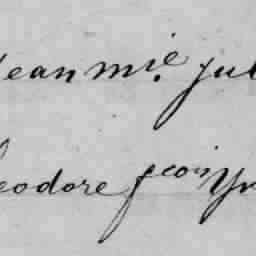 Jean m.ie Jul
eodore fcois Yv